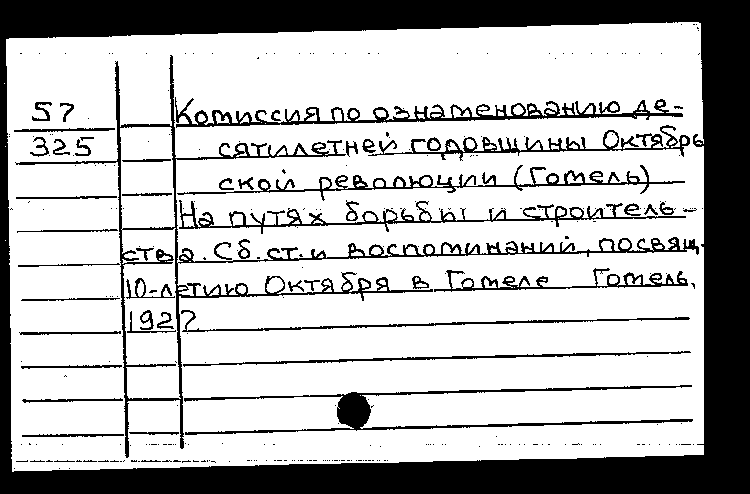 57
325
Комиссия по ознаменованию де-
сятилетней годовщины Октябрь
ской революции (Гомель)
На путях борьбы и строитель-
ства. Сб. ст. и воспоминаний, посвящ.
10-летию Октября в Гомеле Гомель,
1927